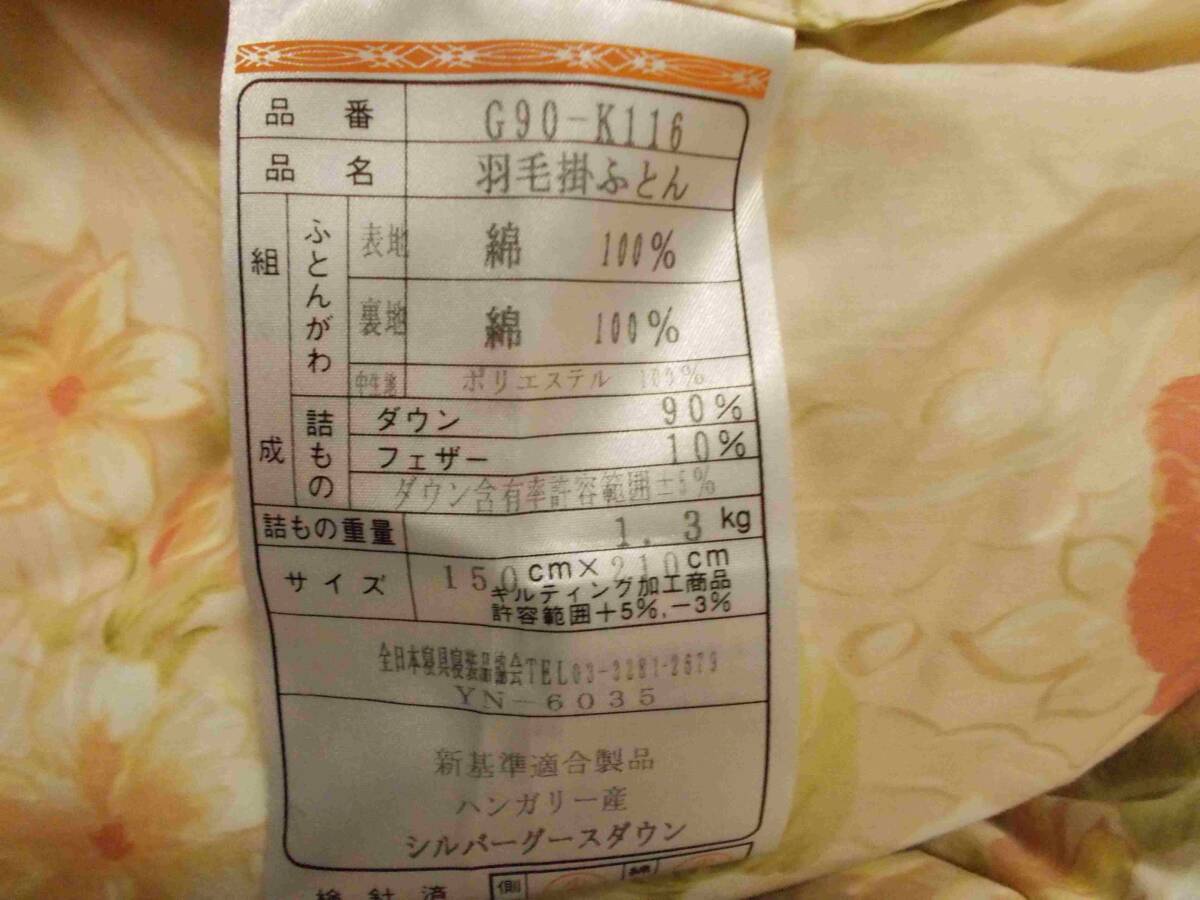 品番 G90-K116
品名 羽毛掛ふとん
組成
ふとんがわ
表地 綿 100%
裏地 綿 100%
ポリエステル 100%
詰もの
ダウン 90%
フェザー 10%
ダウン含有率許容範囲±5%
詰もの重量 1.3kg
サイズ 150cm×210cm
キルティング加工商品
許容範囲+5%,-3%
全日本寝具寝装品協会TEL03-3281-2679
YN-6035
新基準適合製品
ハンガリー産
シルバーグースダウン
検針済
側
綿